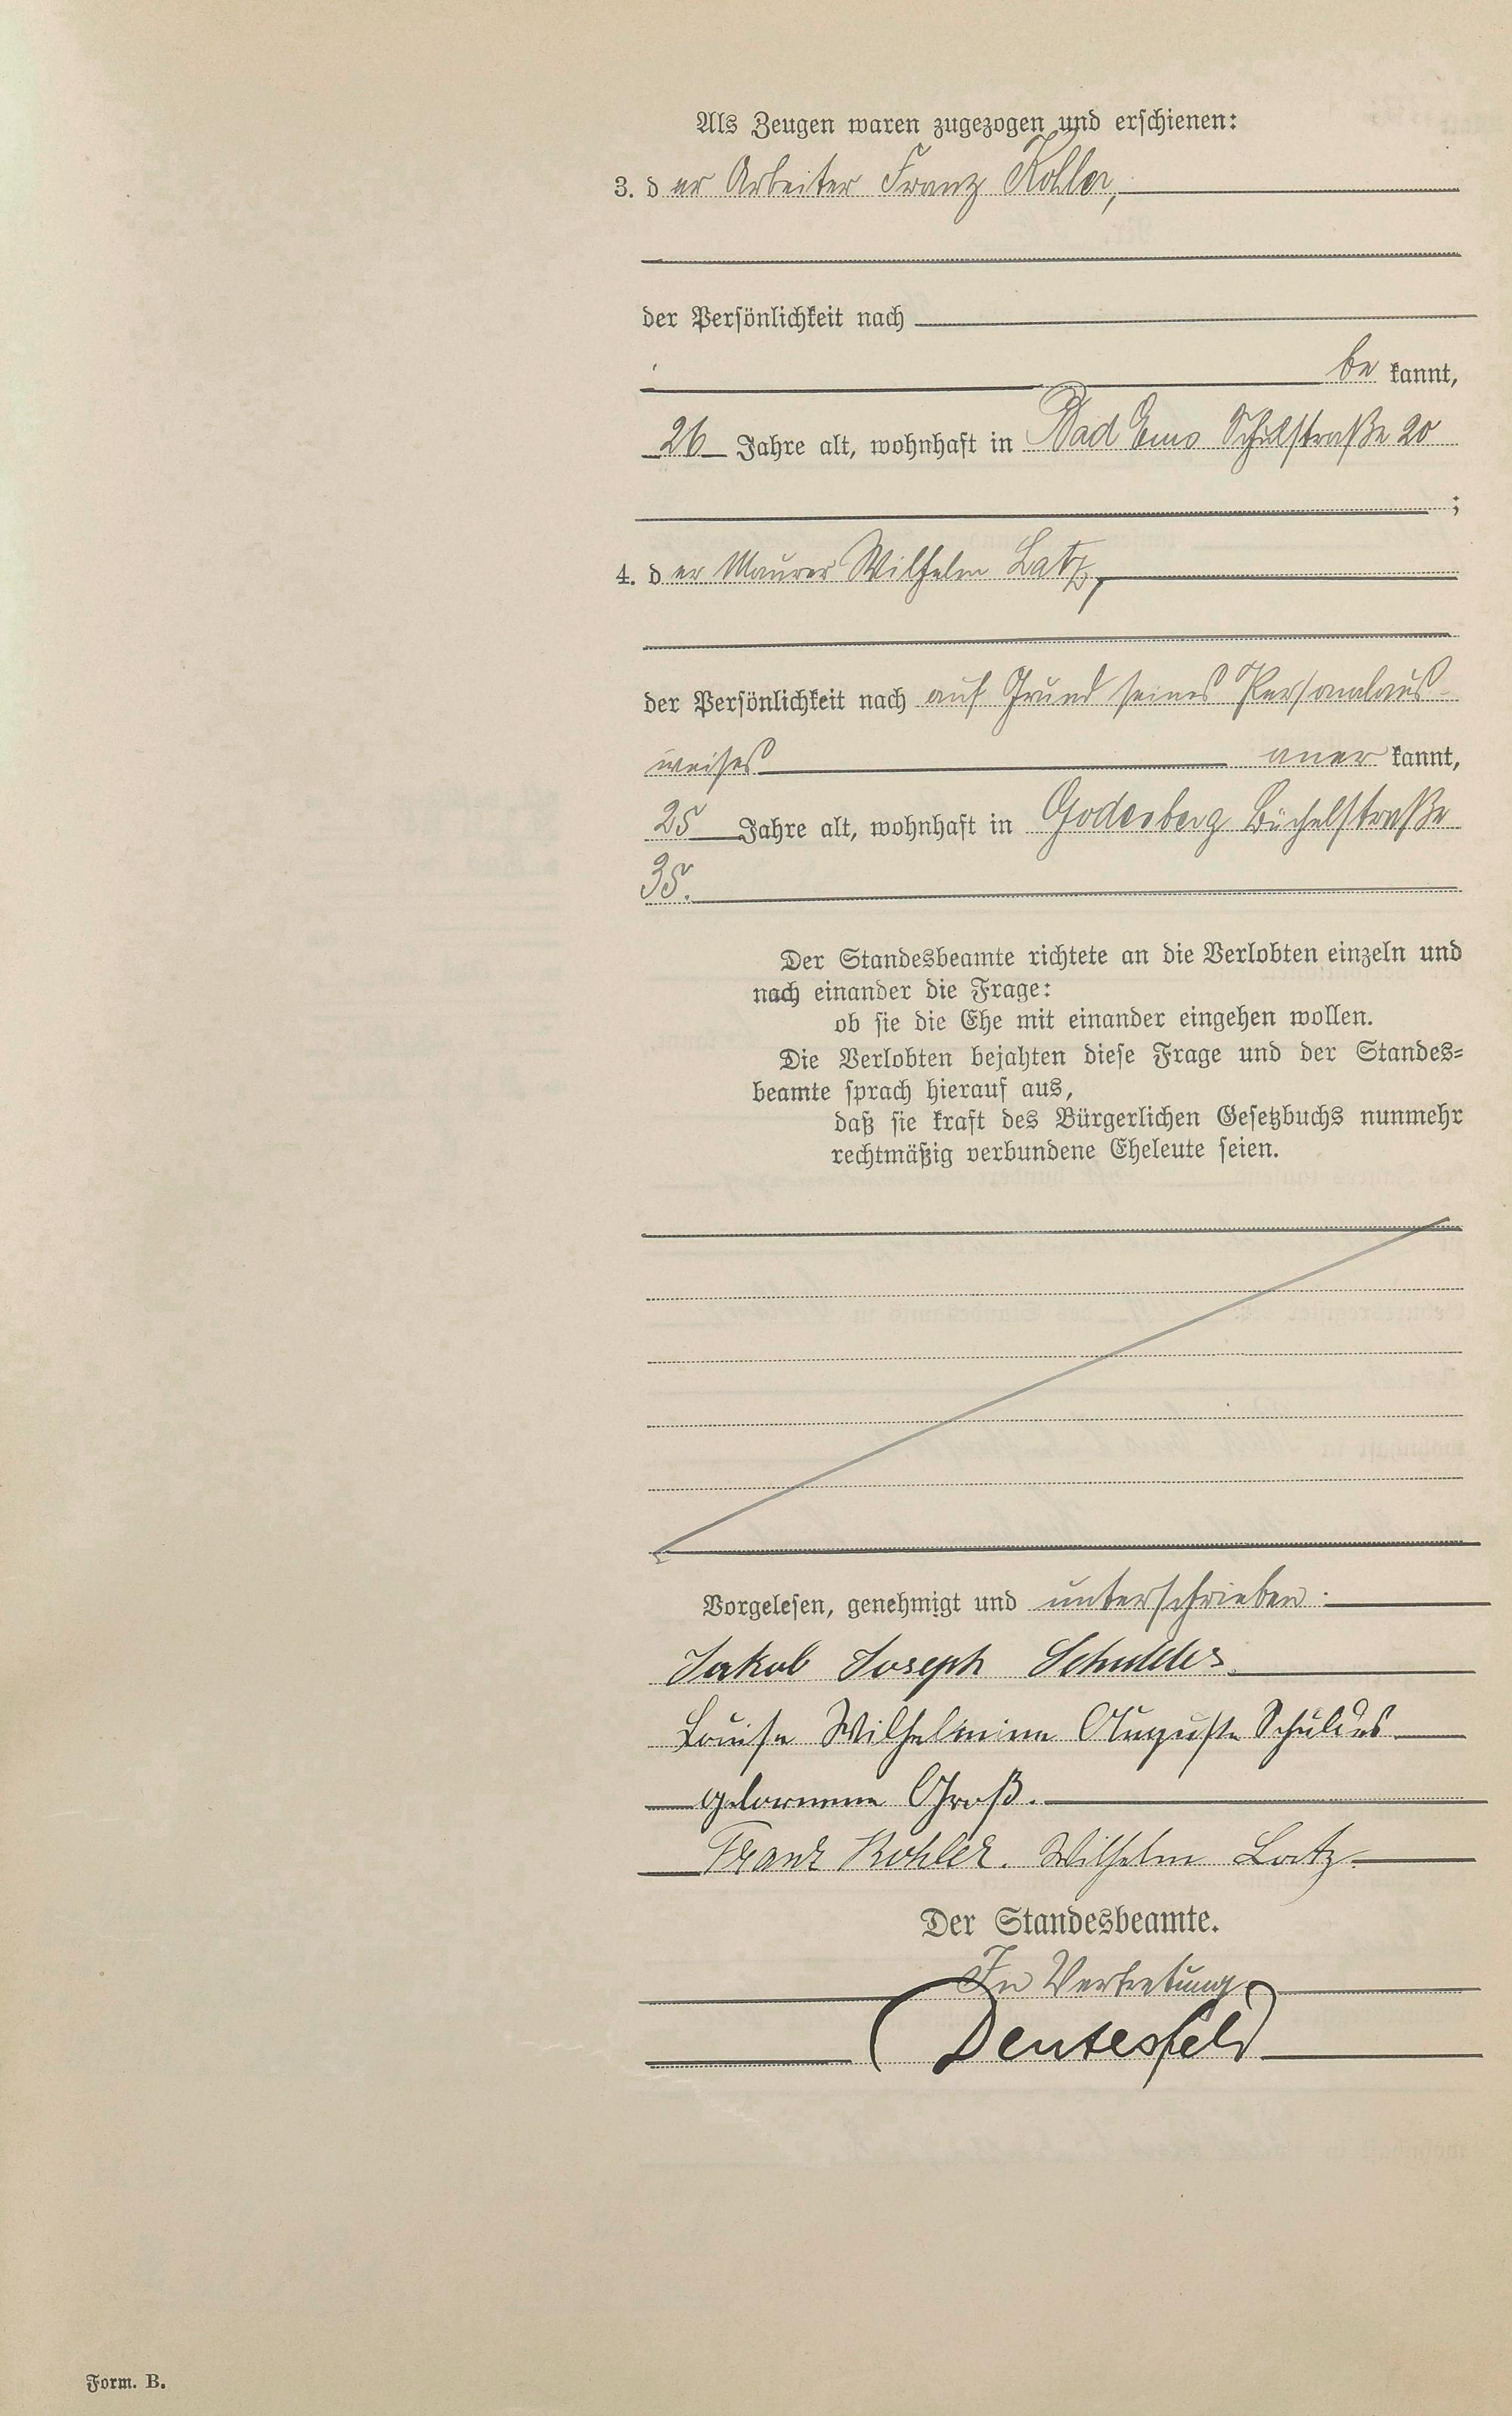 Als Zeugen waren zugezogen und erschienen:
3. der Arbeiter Franz Kohler,
der Persönlichkeit nach
be kannt,
26 Jahre alt, wohnhaft in Bad Ems Schulstraße 20
;
4. der Maurer Wilhelm Latz,
der Persönlichkeit nach auf Grund seines Personalaus-
weises aner kannt,
25 Jahre alt, wohnhaft in Godesberg Büchelstraße
35.
Der Standesbeamte richtete an die Verlobten einzeln und
nach einander die Frage:
ob sie die Ehe mit einander eingehen wollen.
Die Verlobten bejahten diese Frage und der Standes-
beamte sprach hierauf aus,
daß sie kraft des Bürgerlichen Gesetzbuchs nunmehr
rechtmäßig verbundene Eheleute seien.
Vorgelesen, genehmigt und unterschrieben.
Jakob Joseph Schuldes
Louise Wilhelmine Auguste Schuldes
geborenene Groß.
Franz Kohler. Wilhelm Latz
Der Standesbeamte.
In Vertretung
Dentesfeld
Form. B.